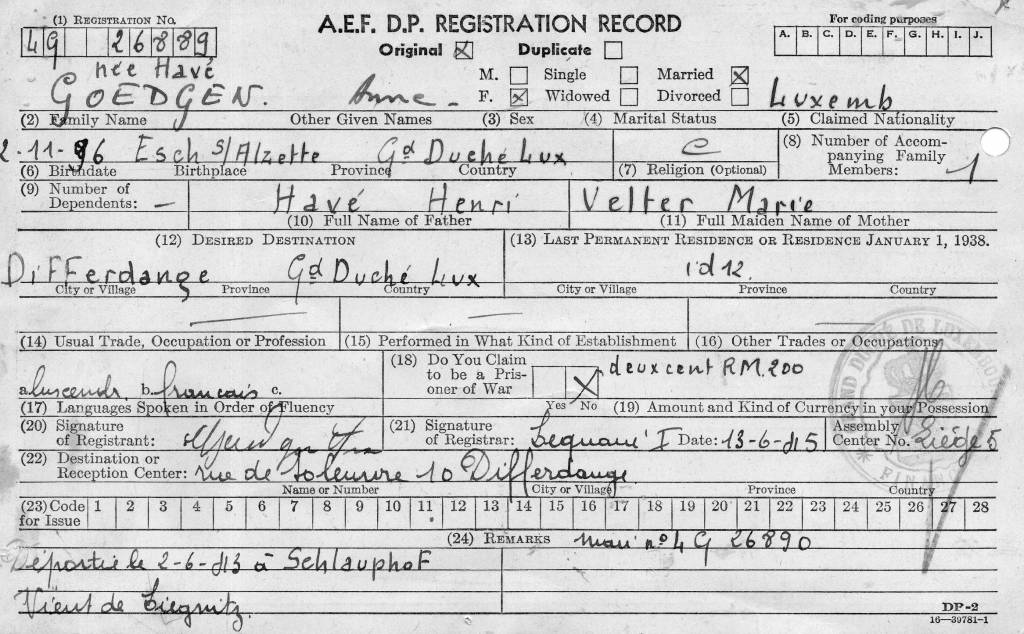 (1) Registration No.
4G 26889
A.E.F. D.P. REGISTRATION RECORD
Original ☒ Duplicate ☐
For coding purposes
A. B. C. D. E. F. G. H. I. J.
née Havé
GOEDGEN. Anne
M. ☐ Single ☐ Married ☒
F. ☒ Widowed ☐ Divorced ☐
Luxemb
(2) Family Name Other Given Names (3) Sex (4) Marital Status (5) Claimed Nationality
2-11-96 Esch s/Alzette Gd Duché Lux
(6) Birthdate Birthplace Province Country
C
(7) Religion (Optional)
(8) Number of Accompanying Family Members: 1
(9) Number of Dependents: —
Havé Henri
(10) Full Name of Father
Velter Marie
(11) Full Maiden Name of Mother
(12) Desired Destination
Differdange Gd Duché Lux
City or Village Province Country
(13) Last Permanent Residence or Residence January 1, 1938.
id 12.
City or Village Province Country
(14) Usual Trade, Occupation or Profession
(15) Performed in What Kind of Establishment
(16) Other Trades or Occupations
a. b. francais c.
(17) Languages Spoken in Order of Fluency
(18) Do You Claim to be a Prisoner of War
Yes No ☒
deuxcent RM. 200
(19) Amount and Kind of Currency in your Possession
(20) Signature of Registrant:
(21) Signature of Registrar:
Date: 13-6-45
Assembly Center No. Liége 5
(22) Destination or Reception Center: rue de Soleuvre 10 Differdange
Name or Number City or Village Province Country
(23) Code for Issue 1 2 3 4 5 6 7 8 9 10 11 12 13 14 15 16 17 18 19 20 21 22 23 24 25 26 27 28
(24) Remarks mari nº 4G 26890
Déportée le 2-6-43 à Schlauphof
Vient de Liegnitz.
DP-2
16—39781-1